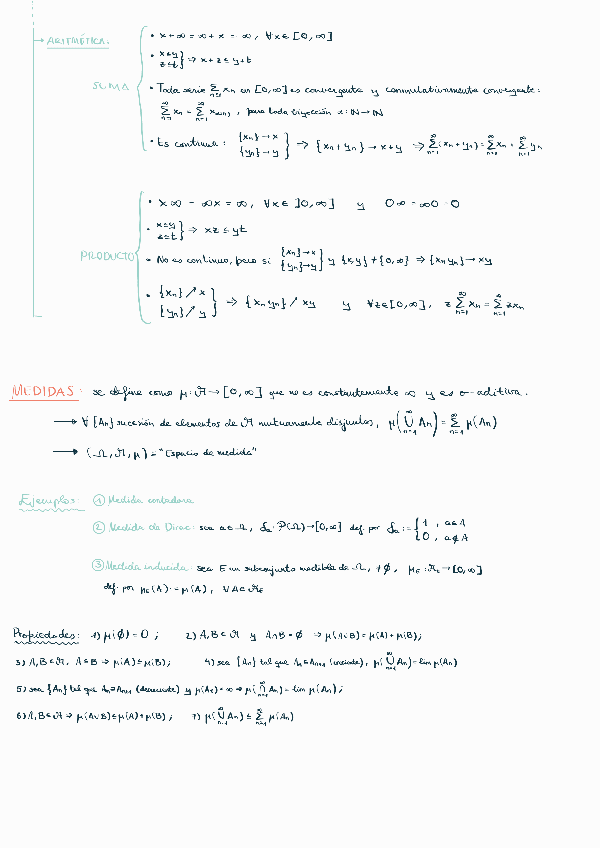 → ARITMÉTICA:
SUMA
• x+∞ = ∞+x = ∞, ∀x∈[0,∞]
• x≤y
z≤t } ⇒ x+z ≤ y+t
• Toda serie ∑ xn en [0,∞] es convergente y conmutativamente convergente:
∑ xn = ∑ xα(n), para toda biyección α: ℕ→ℕ
• Es continua: {xn}→x
{yn}→y } ⇒ {xn+yn}→x+y ⇒ ∑(xn+yn) = ∑xn + ∑yn
PRODUCTO
• x∞ = ∞x = ∞, ∀x∈]0,∞] y 0∞ = ∞0 = 0
• x≤y
z≤t } ⇒ xz ≤ yt
• No es continuo, pero si {xn}→x
{yn}→y } y {x,y}≠{0,∞} ⇒ {xnyn}→xy
• {xn}↗x
{yn}↗y } ⇒ {xnyn}↗xy y ∀z∈[0,∞], z∑xn = ∑zxn
MEDIDAS: se define como μ: 𝒜→[0,∞] que no es constantemente ∞ y es σ-aditiva.
→ ∀ {An} sucesión de elementos de 𝒜 mutuamente disjuntos, μ(⋃An) = ∑ μ(An)
→ (Ω,𝒜,μ) = "Espacio de medida"
Ejemplos: ① Medida contadora
② Medida de Dirac: sea a∈Ω, δa: 𝒫(Ω)→[0,∞] def. por δa := { 1, a∈A
0, a∉A
③ Medida inducida: sea E un subconjunto medible de Ω, ≠∅, μE: 𝒜E→[0,∞]
def. por μE(A) := μ(A), ∀A∈𝒜E
Propiedades: 1) μ(∅) = 0; 2) A,B∈𝒜 y A∩B=∅ ⇒ μ(A∪B) = μ(A)+μ(B);
3) A,B∈𝒜, A⊆B ⇒ μ(A)≤μ(B); 4) sea {An} tal que An⊆An+1 (creciente), μ(⋃An) = lim μ(An)
5) sea {An} tal que An⊇An+1 (decreciente) y μ(A1)<∞ ⇒ μ(⋂An) = lim μ(An);
6) A,B∈𝒜 ⇒ μ(A∪B)≤μ(A)+μ(B); 7) μ(⋃An) ≤ ∑ μ(An)